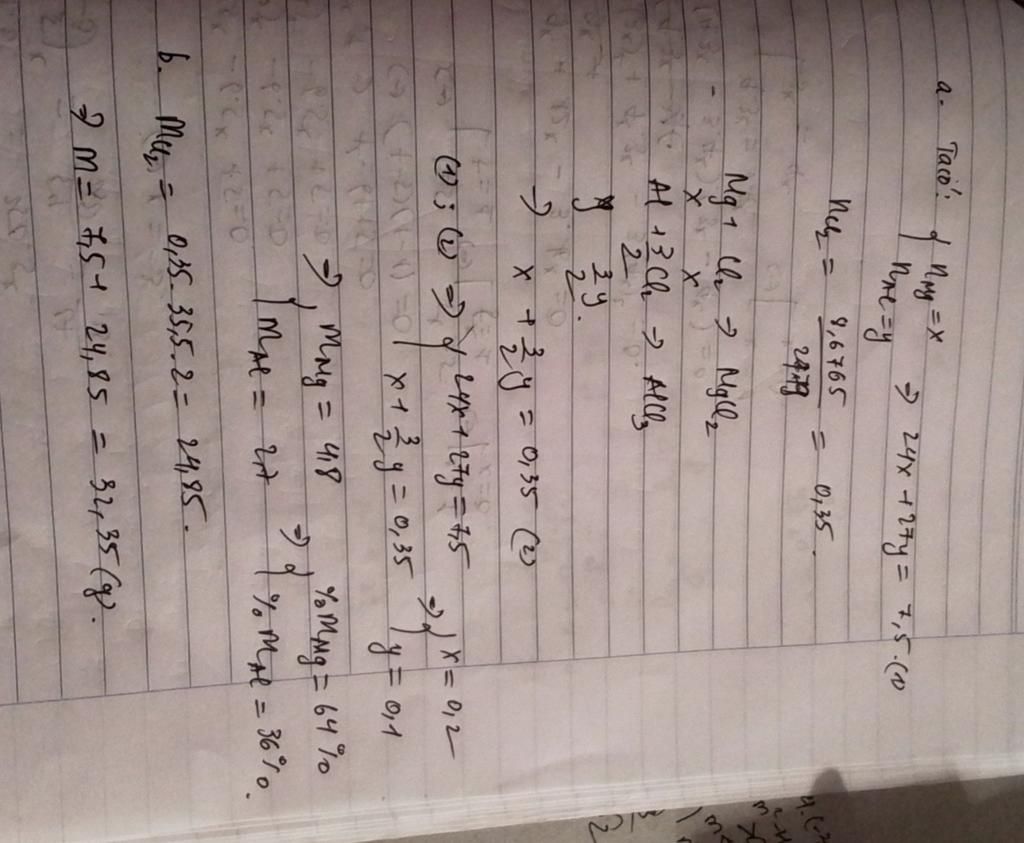 a. Ta có: { nMg = x
nAl = y ⇒ 24x + 27y = 7,5. (1)
nCl2 = 8,6765 / 24,79 = 0,35.
Mg + Cl2 → MgCl2
x x
Al + 3/2 Cl2 → AlCl3
y 3/2 y.
⇒ x + 3/2 y = 0,35 (2)
(1); (2) ⇒ { 24x + 27y = 7,5
x + 3/2 y = 0,35 ⇒ { x = 0,2
y = 0,1
⇒ { mMg = 4,8
mAl = 2,7 ⇒ { %mMg = 64%
%mAl = 36%.
b. mCl2 = 0,35. 35,5. 2 = 24,85.
⇒ m = 7,5 + 24,85 = 32,35 (g).